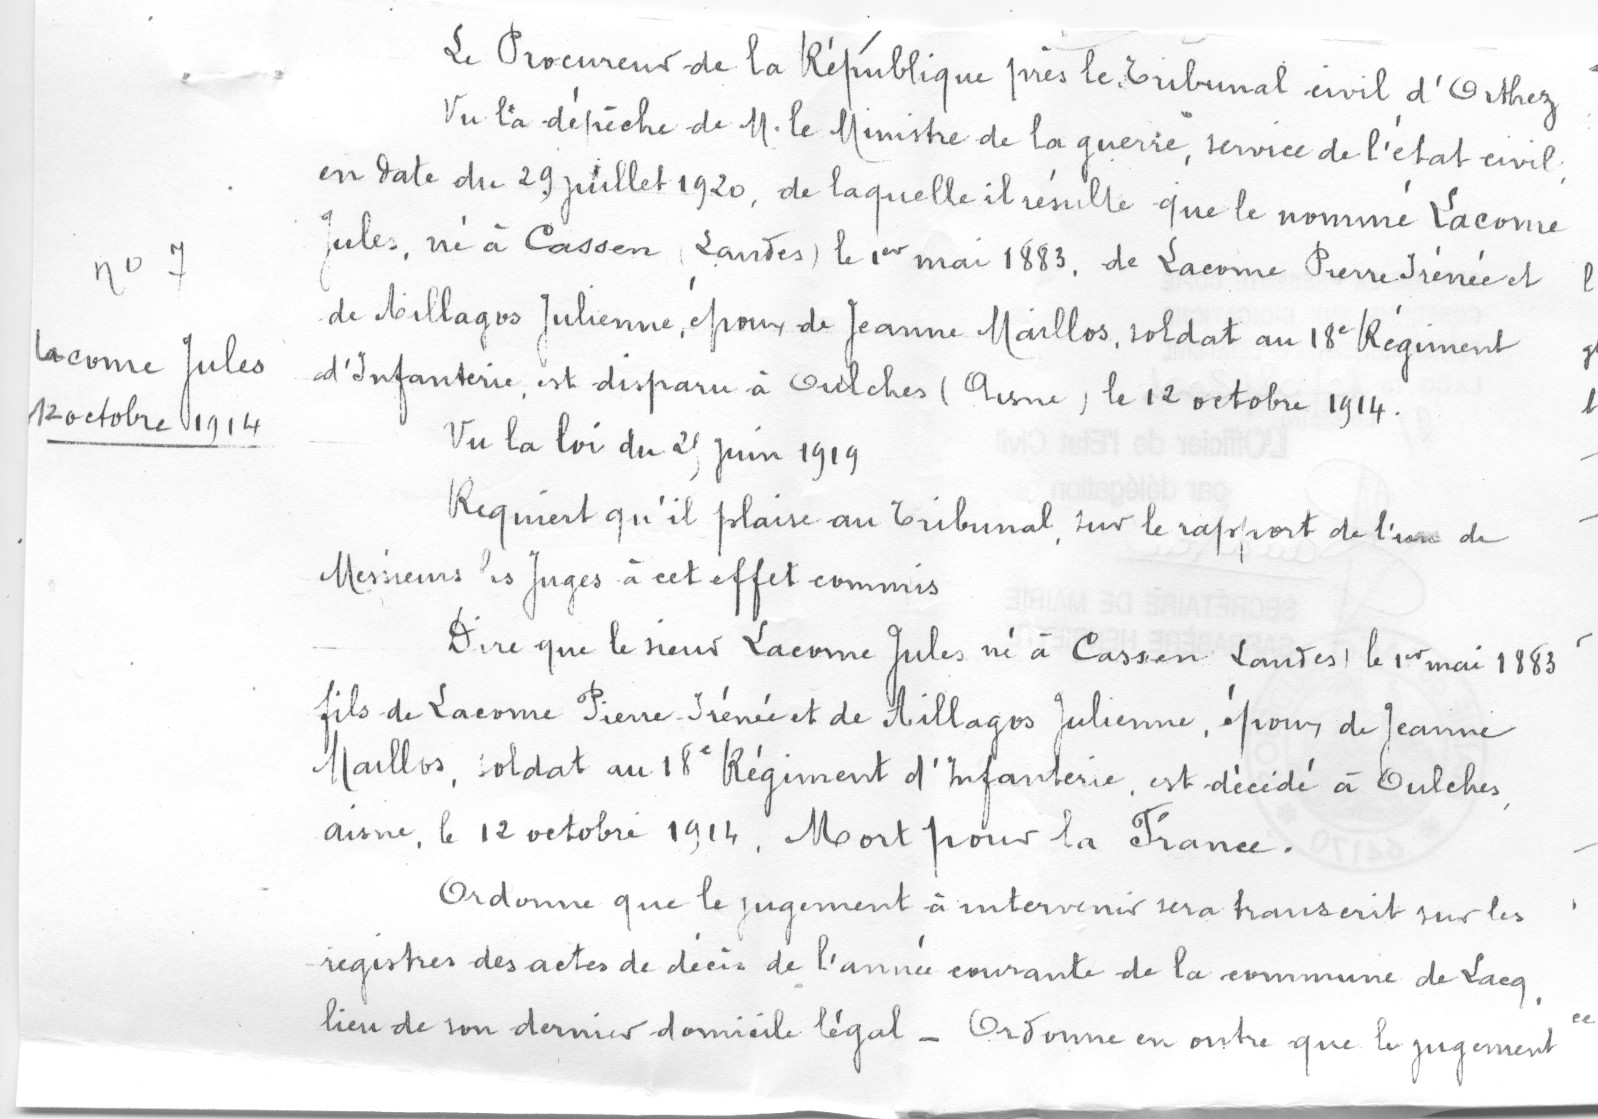 Le Procureur de la République près le Tribunal civil d'Orthez
Vu la dépêche de M. le Ministre de la guerre, service de l'état civil,
en date du 29 juillet 1920, de laquelle il résulte que le nommé Lacome
Jules, né à Cassen (Landes) le 1er mai 1883, de Lacome Pierre Irénée et
n° 7
de Millagos Julienne, époux de Jeanne Maillos, soldat au 18e Régiment
Lacome Jules
d'Infanterie, est disparu à Oulches (Aisne) le 12 octobre 1914.
12 octobre 1914
Vu la loi du 25 juin 1919
Requiert qu'il plaise au Tribunal, sur le rapport de l'un de
Messieurs les Juges à cet effet commis
Dire que le sieur Lacome Jules né à Cassen Landes) le 1er mai 1883
fils de Lacome Pierre Irénée et de Millagos Julienne, époux de Jeanne
Maillos, soldat au 18e Régiment d'Infanterie, est décédé à Oulches,
aisne, le 12 octobre 1914, Mort pour la France.
Ordonne que le jugement à intervenir sera transcrit sur les
registres des actes de décès de l'année courante de la commune de Lacq,
lieu de son dernier domicile légal _ Ordonne en outre que le jugement